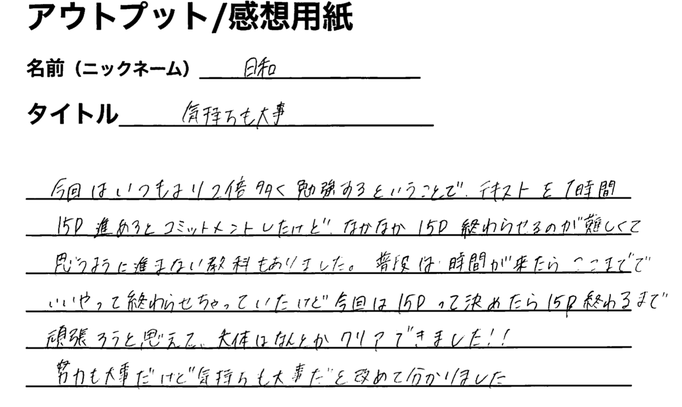 アウトプット/感想用紙
名前（ニックネーム） 日和
タイトル 気持ちも大事
今回はいつもより2倍多く勉強するということで、テキストを1時間
15P進めるとコミットメントしたけど、なかなか15P終わらせるのが難しくて
思うように進まない教科もありました。普段は時間が来たらここまでで
いいやって終わらせちゃっていたけど今回は15Pって決めたら15P終わるまで
頑張ろうと思えて、大体はなんとかクリアできました!!
努力も大事だけど気持ちも大事だと改めて分かりました